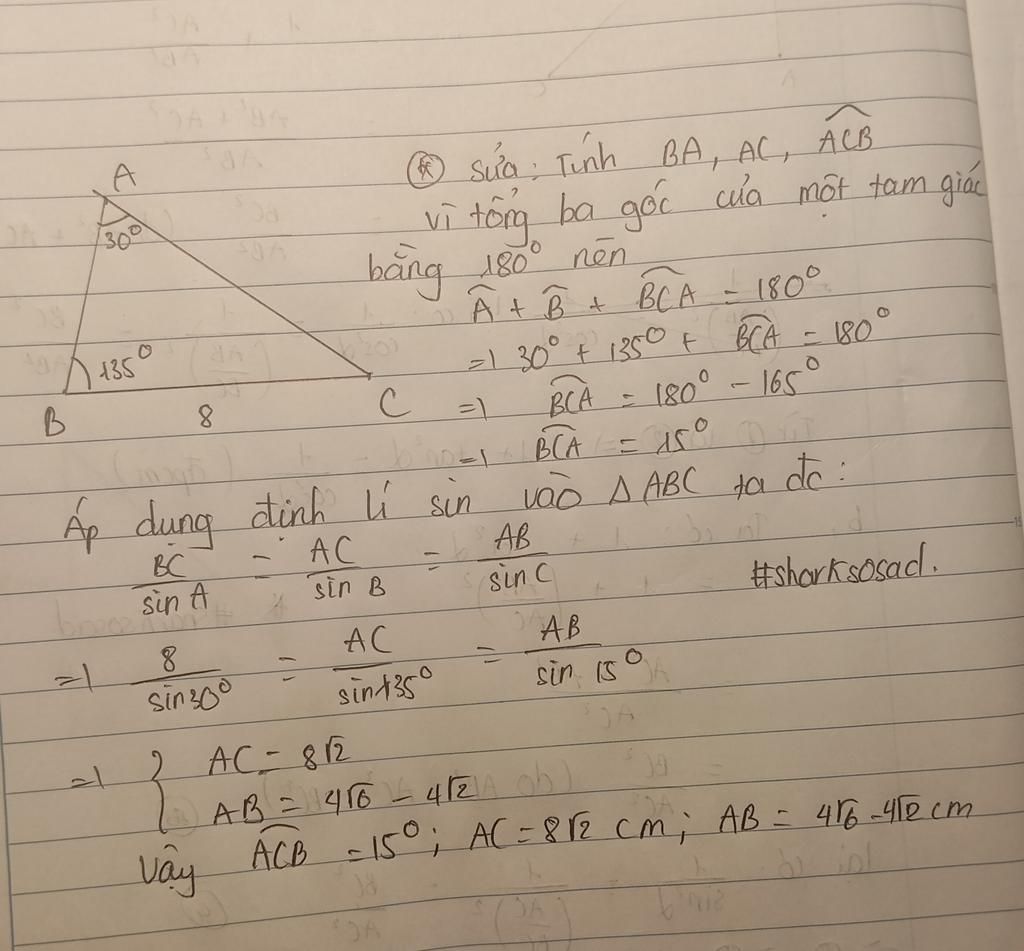 A
30°
B
135°
8
C
(*) Sửa: Tính BA, AC, \widehat{ACB}
vì tổng ba góc của một tam giác
bằng 180° nên
\widehat{A} + \widehat{B} + \widehat{BCA} = 180°
=> 30° + 135° + \widehat{BCA} = 180°
=> \widehat{BCA} = 180° - 165°
=> \widehat{BCA} = 15°
Áp dụng định lí sin vào Δ ABC ta đc:
\frac{BC}{sin A} = \frac{AC}{sin B} = \frac{AB}{sin C}
#sharksosad.
=> \frac{8}{sin30°} = \frac{AC}{sin135°} = \frac{AB}{sin 15°}
=> { AC = 8√2
AB = 4√6 - 4√2
Vậy \widehat{ACB} = 15°; AC = 8√2 cm; AB = 4√6 - 4√2 cm